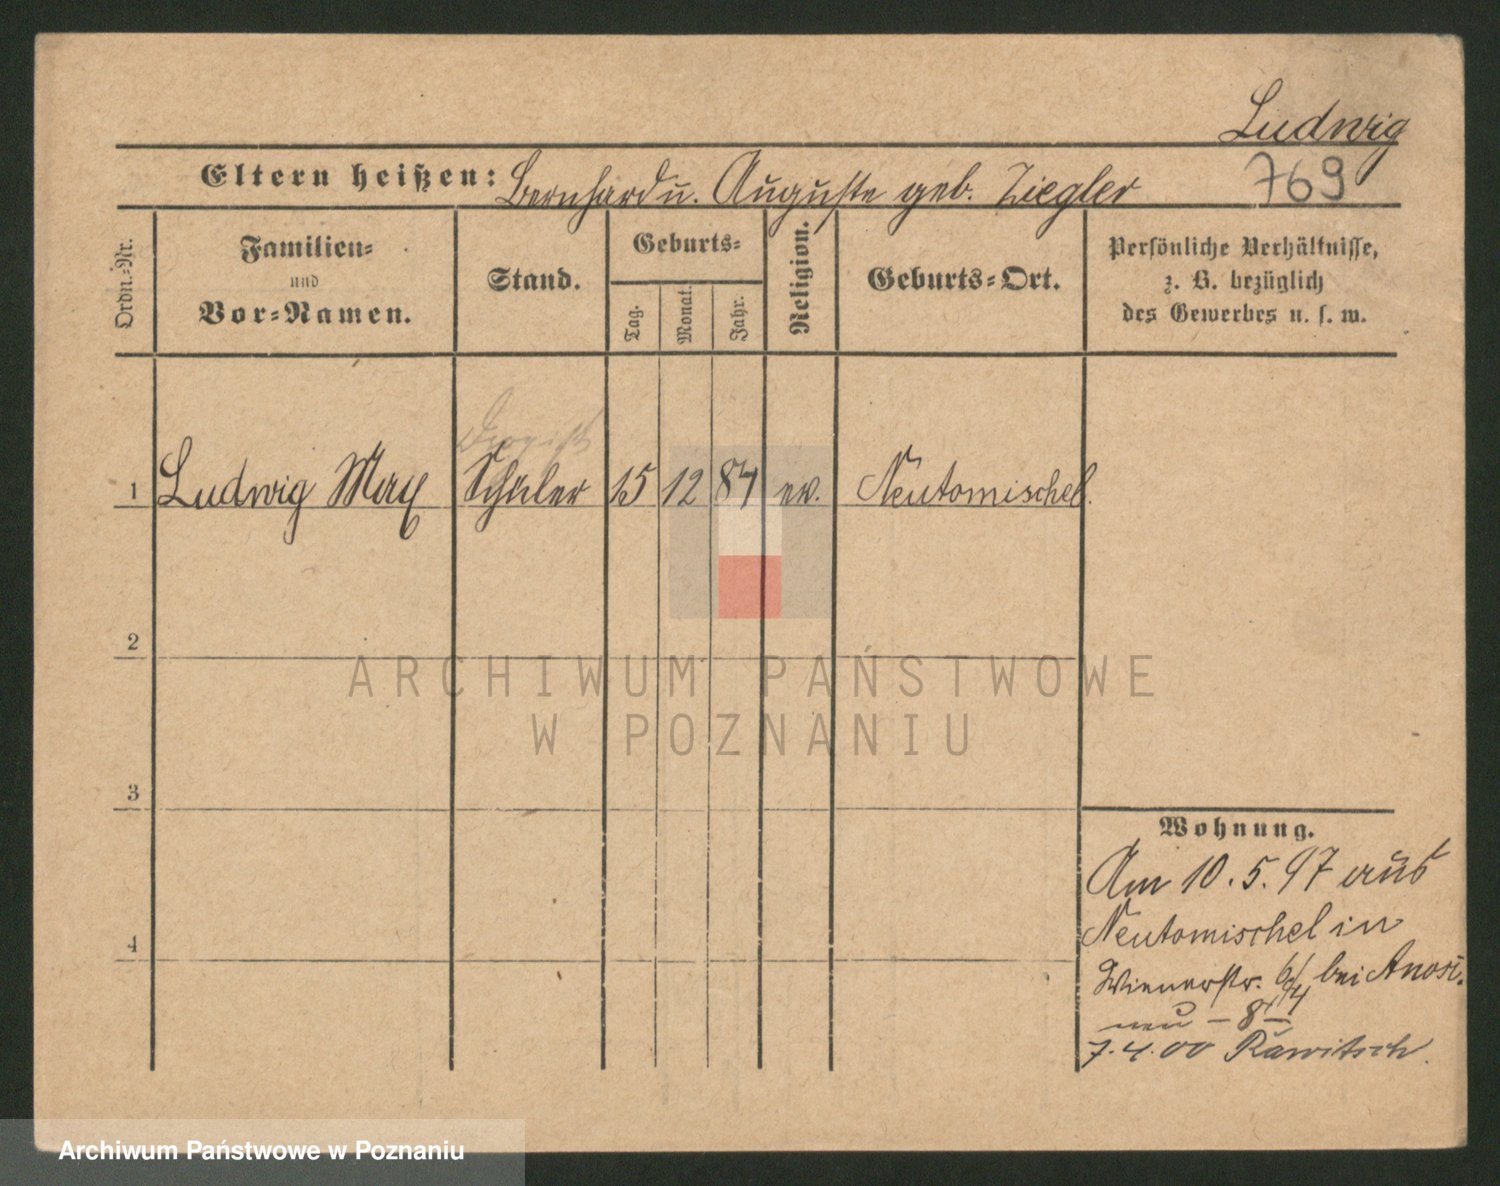 Ludwig
Eltern heißen: Bernhard u. Auguste geb. Ziegler 769
Ordn.-Nr.
Familien-
und
Vor-Namen.
Stand.
Geburts-
Tag.
Monat.
Jahr.
Religion.
Geburts-Ort.
Persönliche Verhältnisse,
z. B. bezüglich
des Gewerbes u. s. w.
Drogist
1 Ludwig Max Schüler 15 12 84 ev. Neutomischel.
2
ARCHIWUM PAŃSTWOWE
W POZNANIU
3
Wohnung.
Am 10.5.97 aus
4 Neutomischel in
Wienerstr. bei
neu – 8 –
7.4.00 Rawitsch.
Archiwum Państwowe w Poznaniu